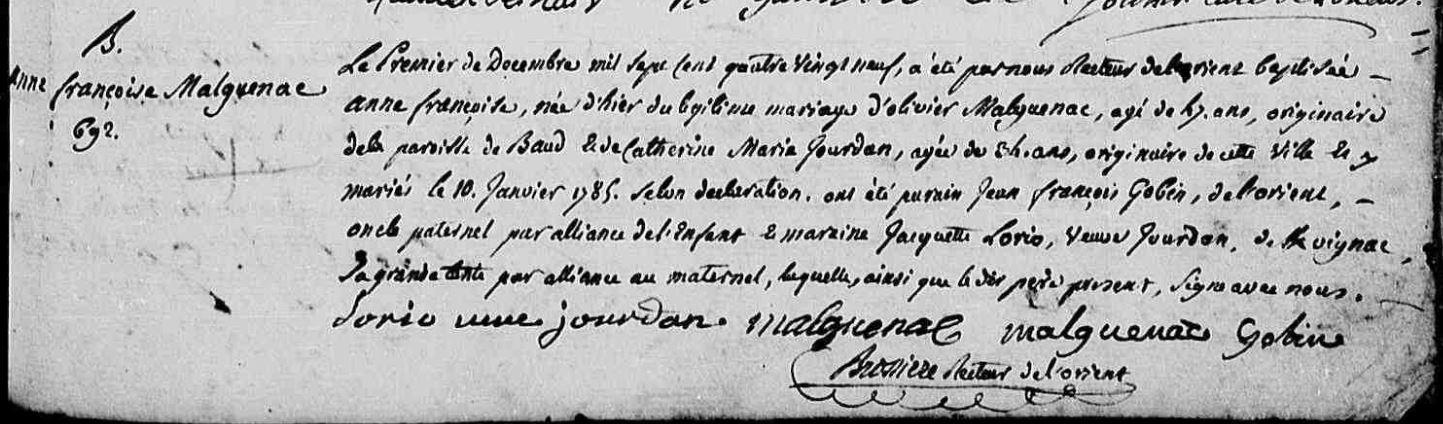 B.
Anne
françoise Malguenac
692.
Le Premier de Decembre mil sept cent quatre vingt neuf, a été par nous Recteur de Lorient baptisée
anne françoise, née d'hier du légitime mariage d'olivier Malguenac, agé de 47. ans, originaire
de la paroisse de Baud & de Catherine Marie Jourdan, agée de ans, originaire de cette Ville & y
mariés le 10. Janvier 1785. selon declaration. ont été parain Jean françois Gobin, de Lorient,
oncle paternel par alliance de l'Enfant & maraine Jacquette Lorio, veuve Jourdan, de
Sa grande tante par alliance au maternel, laquelle, ainsi que le dit père present, signe avec nous.
Lorio veuve jourdan malguenac malguenac Gobin
Brossiere Recteur de Lorient